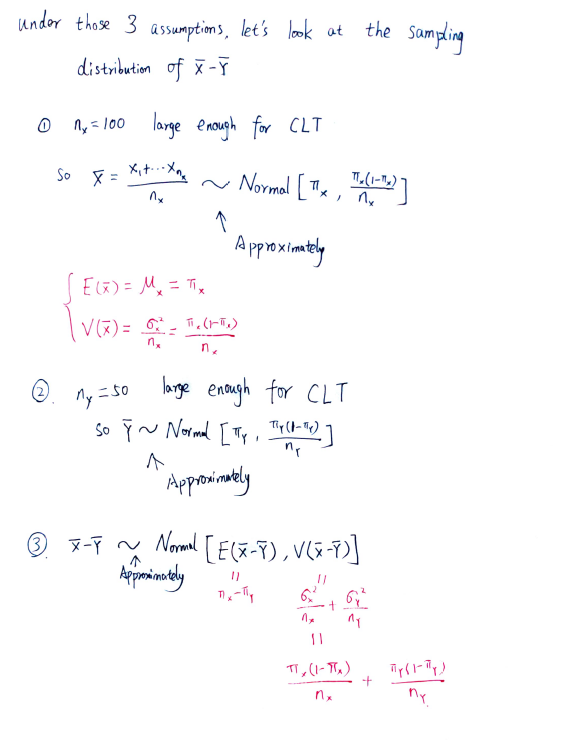 Under those 3 assumptions, let's look at the sampling
distribution of x̄-Ȳ
① nₓ=100 large enough for CLT
So x̄ = (x₁+...Xnₓ)/nₓ ~ Normal [πₓ, πₓ(1-πₓ)/nₓ]
↑
Approximately
{ E(x̄) = Mₓ = πₓ
V(x̄) = σₓ²/nₓ = πₓ(1-πₓ)/nₓ
② n_y=50 large enough for CLT
So Ȳ ~ Normal [π_Y, π_Y(1-π_Y)/n_Y]
↑
Approximately
③ x̄-Ȳ ~ Normal [E(x̄-Ȳ), V(x̄-Ȳ)]
↑ Approximately
|| πₓ-π_Y
|| σₓ²/nₓ + σ_Y²/n_Y
||
πₓ(1-πₓ)/nₓ + π_Y(1-π_Y)/n_Y